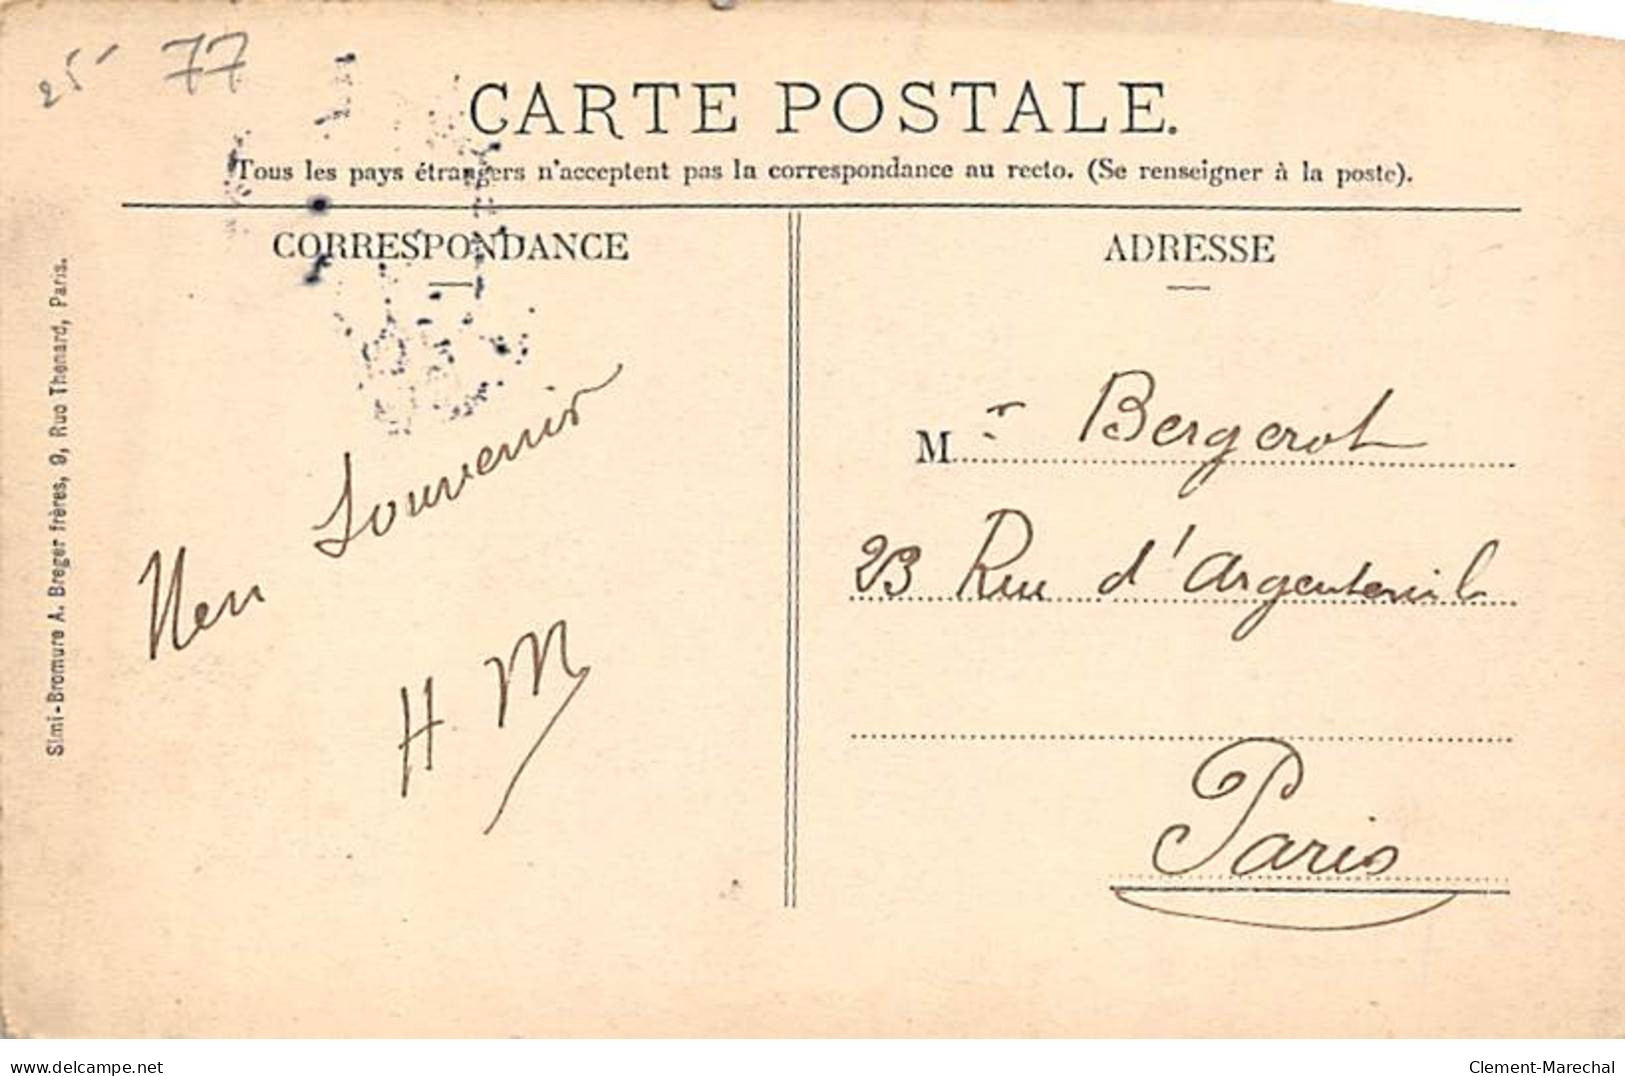 25 77
CARTE POSTALE.
Tous les pays étrangers n'acceptent pas la correspondance au recto. (Se renseigner à la poste).
CORRESPONDANCE
Souvenir
H M
ADRESSE
Mr Bergerot
23 Rue d'Argenteuil
Paris
Simi-Bromure A. Breger frères, 9, Rue Thenard, Paris.
delcampe.net
Clement-Marechal